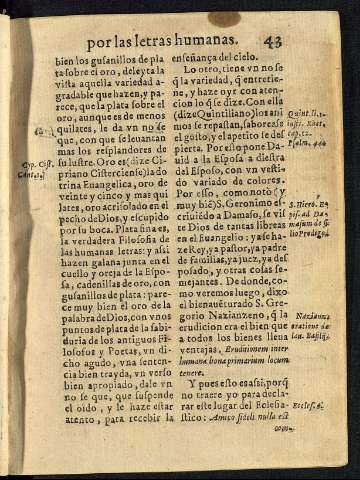 por las letras humanas. 43
bien los gusanillos de pla
ta sobre el oro, deleyta la
vista aquella variedad a-
gradable que hazen, y pa-
rece, que la plata sobre el
oro, aunque es de menos
quilates, le da vn no se
que, con que se leuantan
mas los resplandores de
su lustre. Oro es (dize Ci-
priano Cisterciense) la do
trina Euangelica, oro de
veinte y cinco y mas qui
lates, oro acrisolado en el
pecho de Dios, y escupido
por su boca. Plata fina es,
la verdadera Filosofia de
las humanas letras: y assi
hazen galana junta en el
cuello y oreja de la Espo-
sa, cadenillas de oro, con
gusanillos de plata: pare-
ce muy bien el oro de la
palabra de Dios, con vnos
puntos de plata de la sabi-
duria de los antiguos Fi-
losofos y Poetas, vn di-
cho agudo, vna senten-
cia bien trayda, vn verso
bien apropiado, dale vn
no se que, que suspende
el oido, y le haze estar
atento, para recebir la
Cyp. Cist.
Cant. 1.
enseñança del cielo.
Lo otro, tiene vn no se
q̃ la variedad, q̃ entretie-
ne, y haze oyr con aten-
cion lo q̃ se dize. Con ella
(dize Quintiliano) los ani
mos se repastan, saborease
el gusto, y el apetito se des
pierta. Por esto pone Da-
uid a la Esposa a diestra
del Esposo, con vn vesti-
do variado de colores.
Por esso, como notò (y
muy biẽ) S. Geronimo es-
criuiẽdo a Damaso, se vis
te Dios de tantas libreas
en el Euangelio: ya se ha-
ze Rey, ya pastor, ya padre
de familias, ya juez, ya des
posado, y otras cosas se-
mejantes. De donde, co-
mo veremos luego, dixo
el bienauẽturado S. Gre-
gorio Nazianzeno, q̃ la
erudicion era el bien que
a todos los bienes lleua
ventajas, Eruditionem inter
humana bona primarium locum
tenere.
Y pues esto es assi, porq̃
no traere yo para decla-
rar este lugar del Eclesia-
stico: Amico fideli nulla est
Psalm. 44
S. Hiero. E-
pist. ad Da-
masum de fi
lio Prodigo.
Nazian.
oratione de
lau. Basilij.
Ecclef. 6.